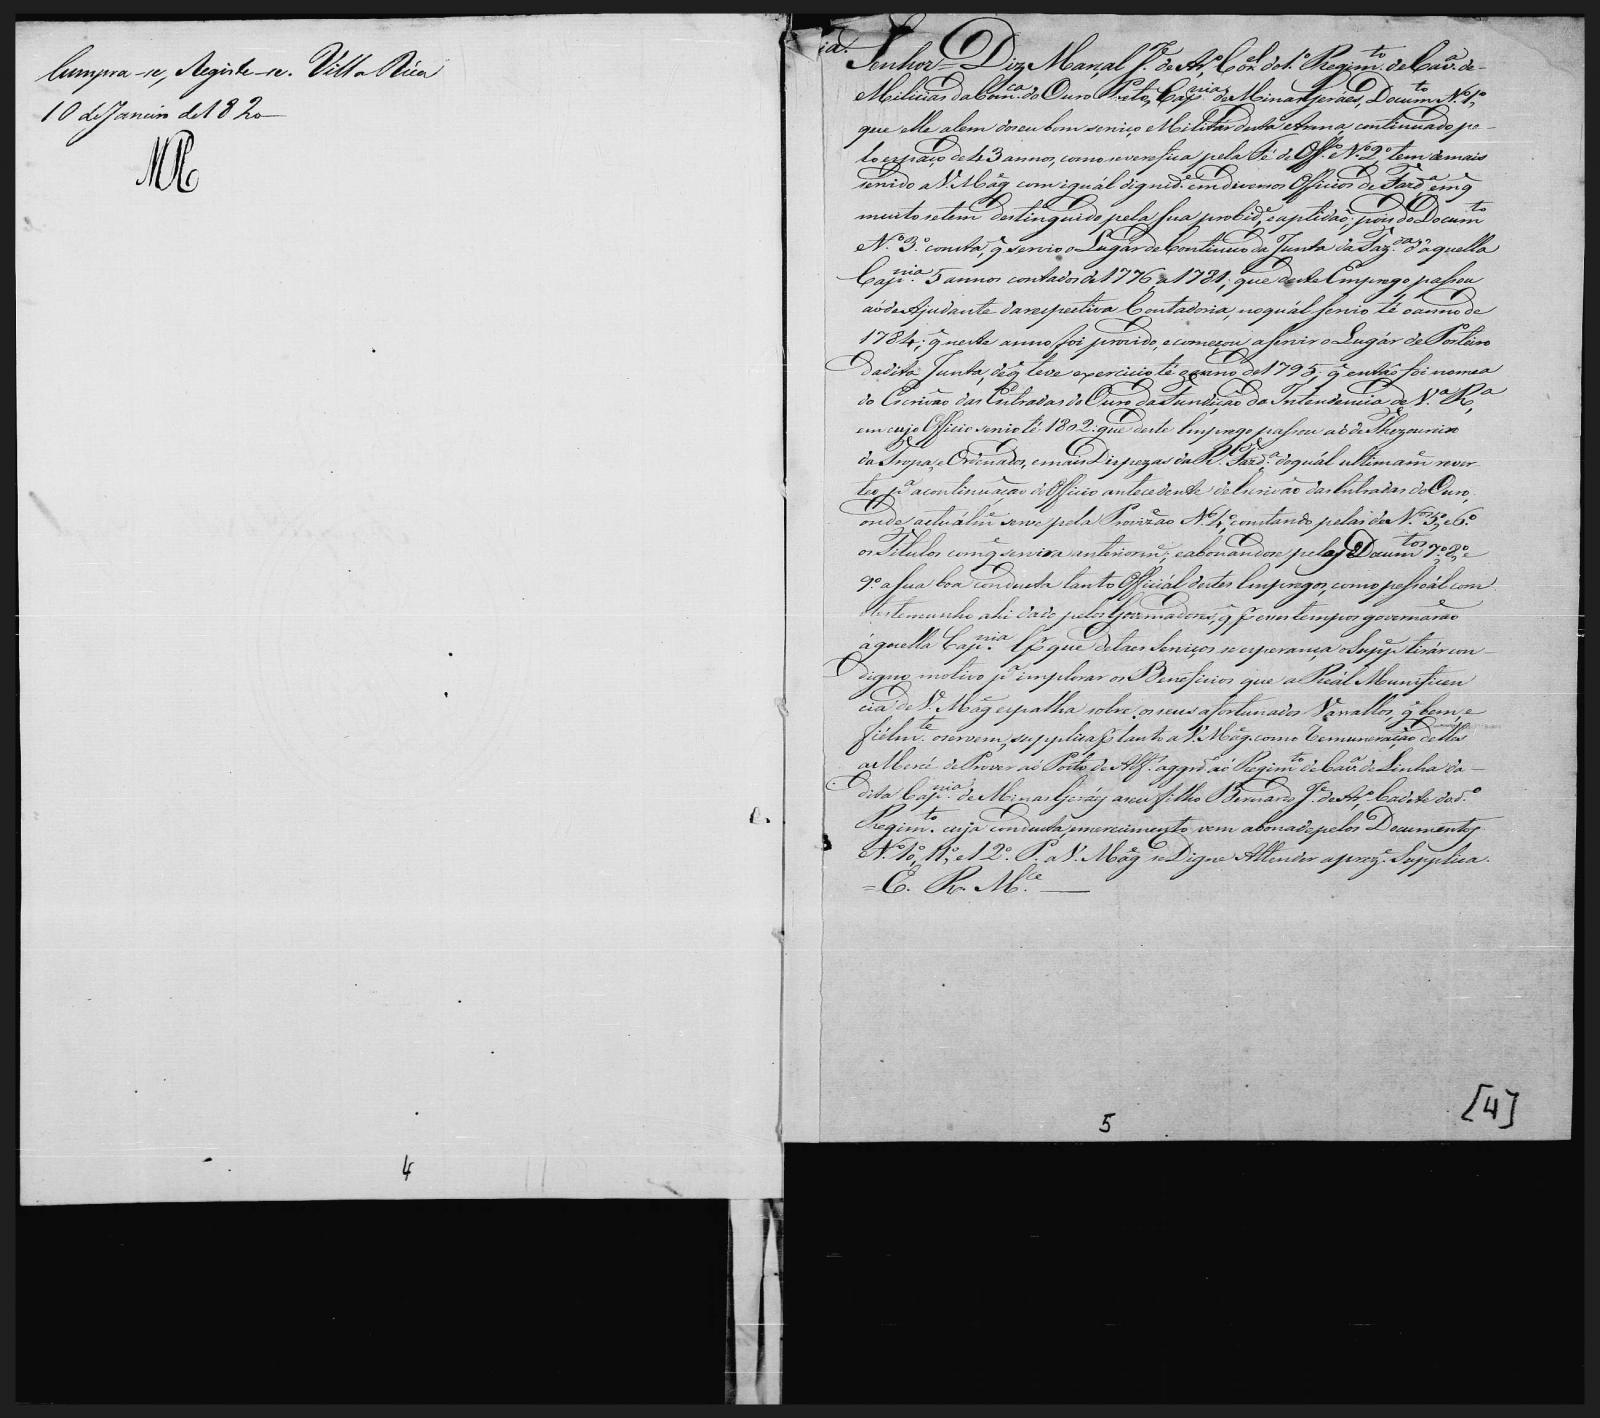 Cumpra-se, Registe-se. Villa Rica
10 de Janeiro de 1820
MR
4
ia.
Senhor = Diz Marçal Je. de Ar.º Cor.el do 1.º Regim.to de Cav.ª de
Milicias da Com.ca do Ouro Preto, Cap.nia de Minas Geráes, Docum.to N.º 1.º,
que elle alem do seu bom serviço Militar desta Arma, continuado pe-
lo espaço de 43 annos, como se verefica pela Fé de Off.º N.º 2.º, tem demais
servido a V. Mag.e com iguál dignid.e em diversos Officios de Fazd.ª, em q̃
muito se tem destinguido pela sua probid.e, e aptidaõ; pois do Docum.to
N.º 3.º consta, q̃ servio o Lugár de Continuo da Junta da Faz.da d'aquella
Cap.nia 5 annos contados de 1776 a 1781; que deste Emprego passou
ao de Ajudante da respectiva Contadoria, no quál servio té o anno de
1784; q̃ neste anno foi provido, e começou a servir o Lugár de Porteiro
da dita Junta, de q̃ teve exercicio té o anno de 1795; q̃ entaõ foi nomea
do Escrivaõ das Entradas do Ouro da Fundiçaõ da Intendencia de V.ª R.ª,
em cujo Officio servio té 1802: que deste Emprego passou ao de Thezoureiro
da Tropa, e Ordenados, e mais Dispezas da R. Fazd.ª do quál ultimam.e rever-
teo p.ª a continuaçaõ do Officio antecedente de Escrivaõ das Entradas do Ouro,
onde actuálm.e serve pela Provizaõ N.º 4.º, constando pelas de N.os 5.º, e 6.º
os Titulos com q̃ servira anteriorm.e; e abonando-se pelos Docum.tos 7.º, 8.º, e
9.º a sua boa conducta tanto Officiál destes Empregos, como pessoál com
o testemunho ahi dado pelos Governadores, q̃ p.r esses tempos governaraõ
áquella Cap.nia. E p.r que de taes Serviços se esperança o Supp.e tirár con-
digno motivo p.ª implorar os Beneficios que a Reál Munificen
cia de V. Mag.e espalha sobre os seus afortunados Vassallos, q̃ bem, e
fiélm.te o servem, supplica p.r tanto a V. Mag.e como Remuneraçaõ delles
a Mercê de Prover aó Posto de Alf.s aggrd.º aó Regim.to de Cav.ª de Linha da
dita Cap.nia de Minas Geráes a seu filho Bernardo Je. de Ar.º Cadete do d.º
Regim.to cuja conducta, e merecimento vem abonado pelos Documentos
N.º 10.º, 11.º, e 12.º. P. a V. Mag.e se Digne Attender a prez.e Supplica.
= E. R. M.ce
5
[4]